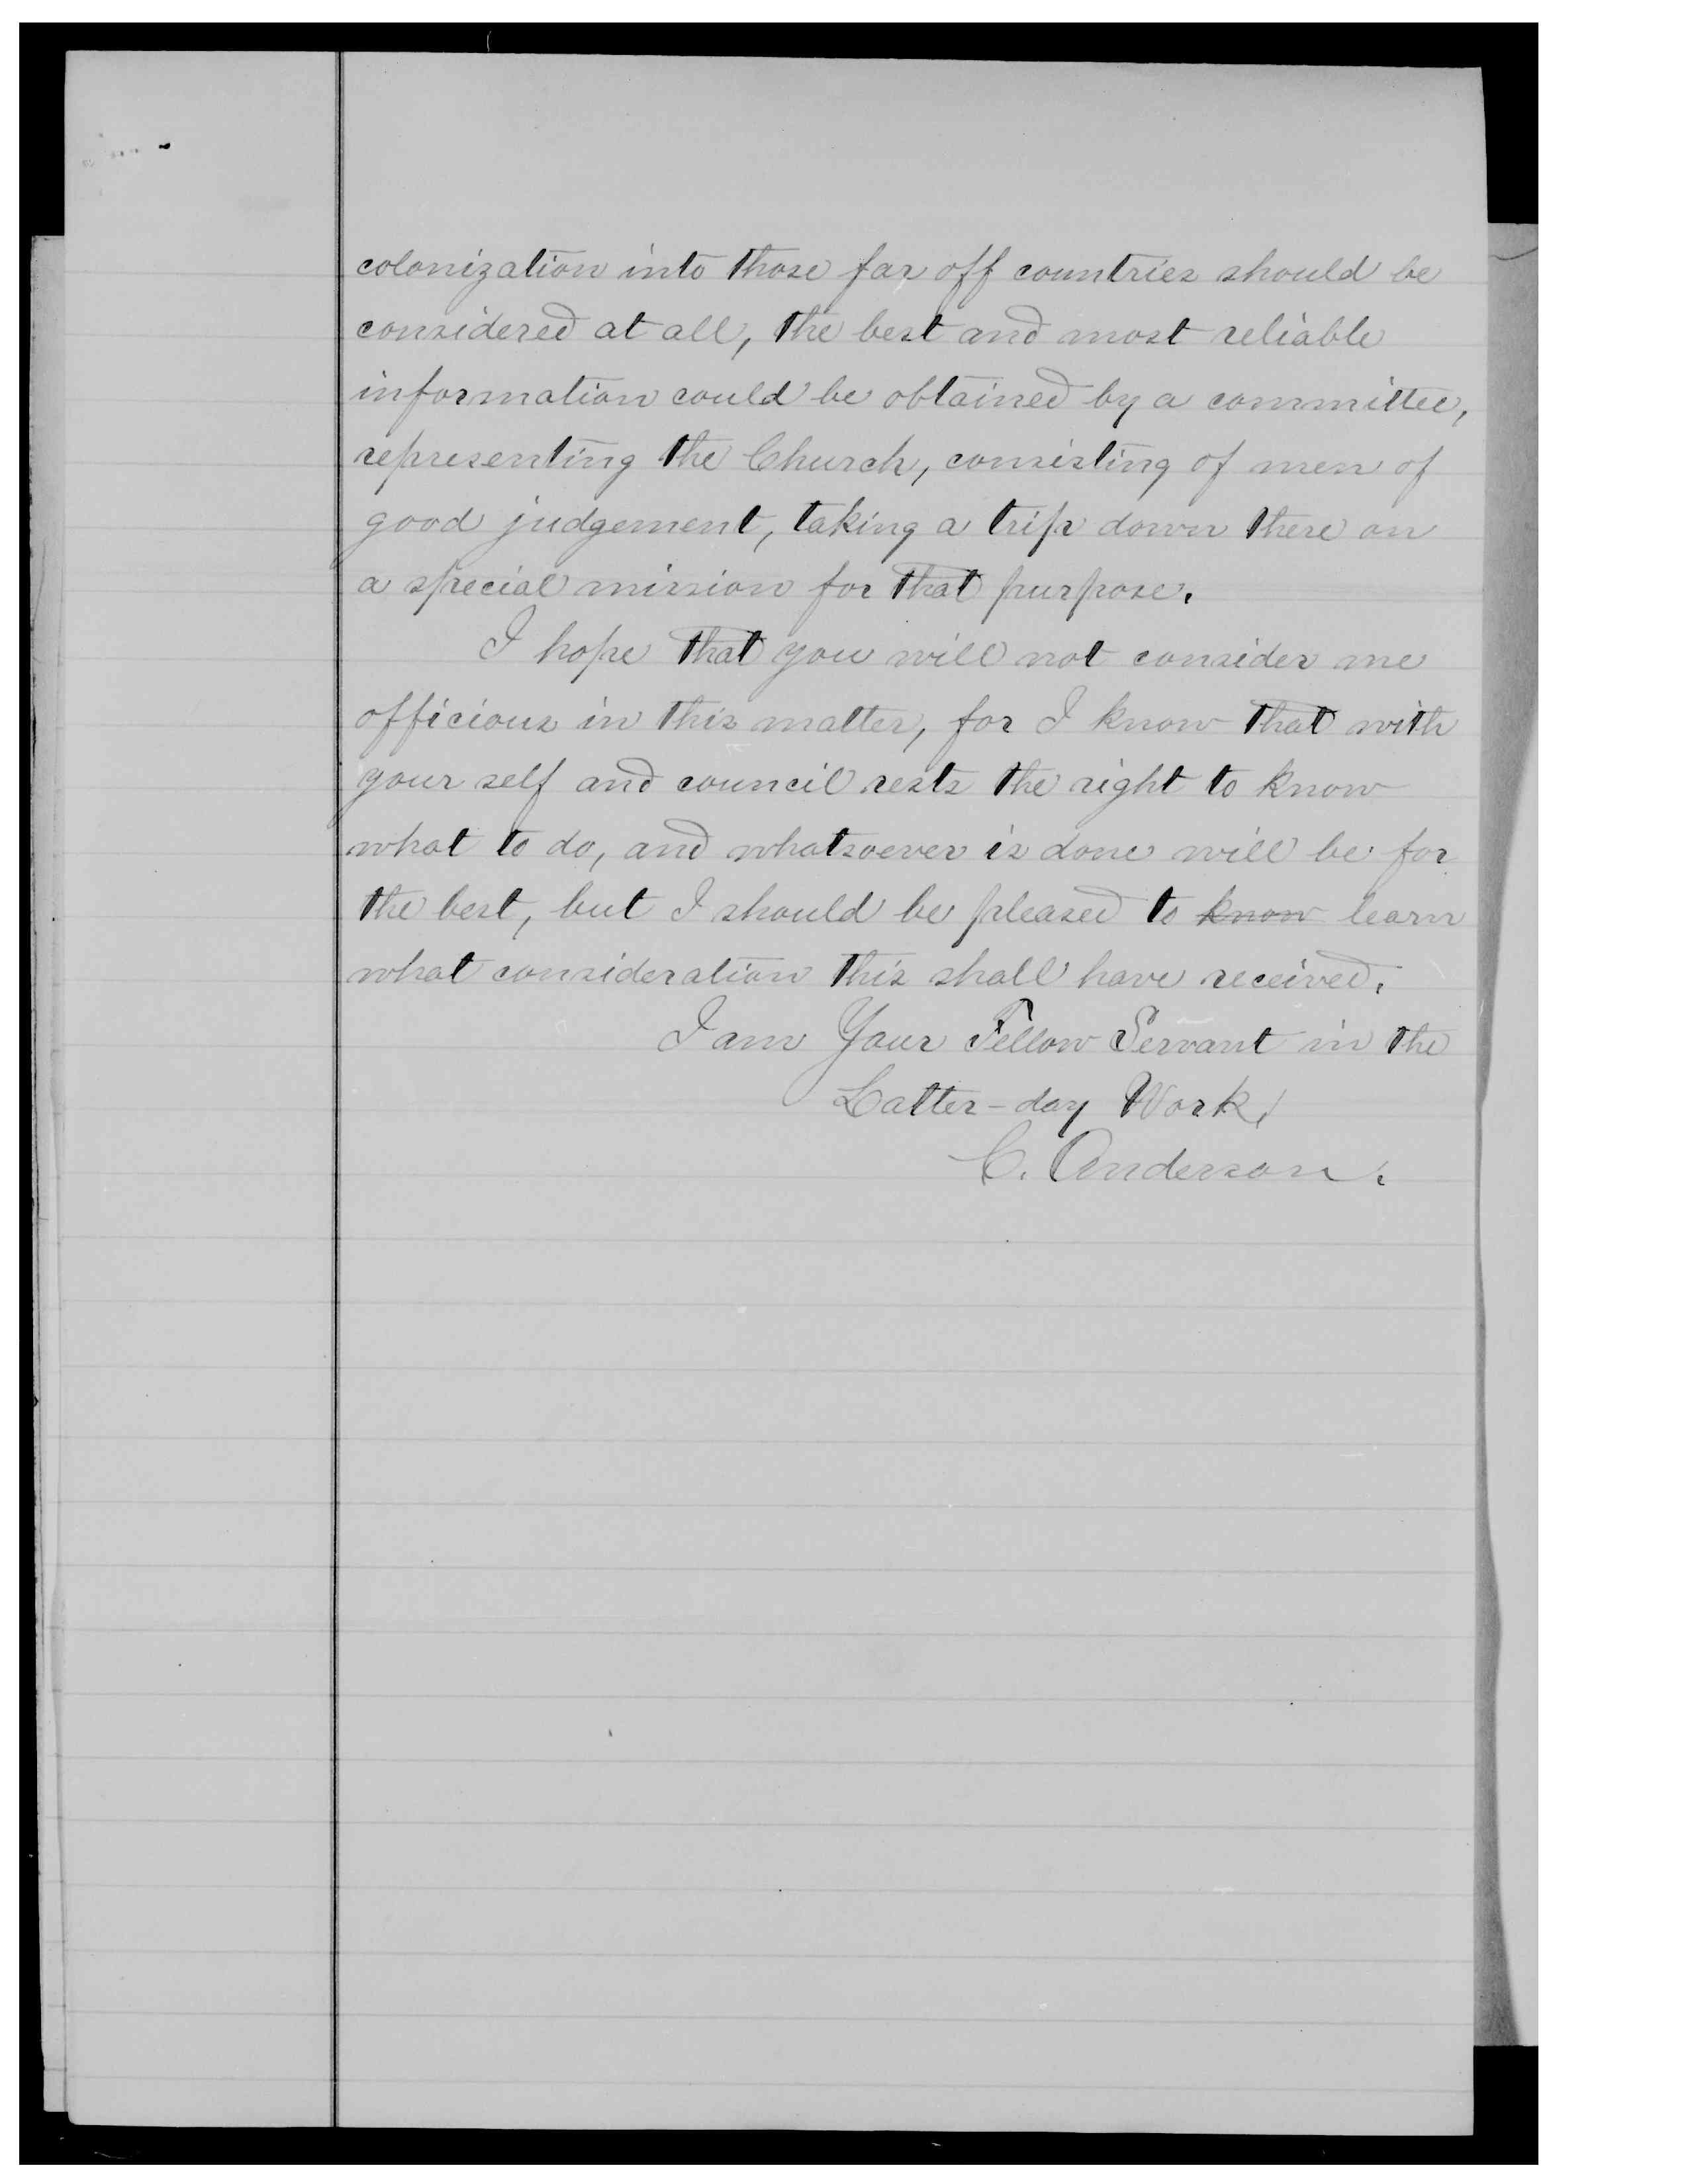 colonization into those far off countries should be
considered at all, the best and most reliable
information could be obtained by a committee,
representing the Church, consisting of men of
good judgement, taking a trip down there on
a special mission for that purpose.
I hope that you will not consider me
officious in this matter, for I know that with
your self and council rests the right to know
what to do, and whatsoever is done will be for
the best, but I should be pleased to know learn
what consideration this shall have received.
I am Your Fellow Servant in the
Latter-day Work,
C. Anderson.